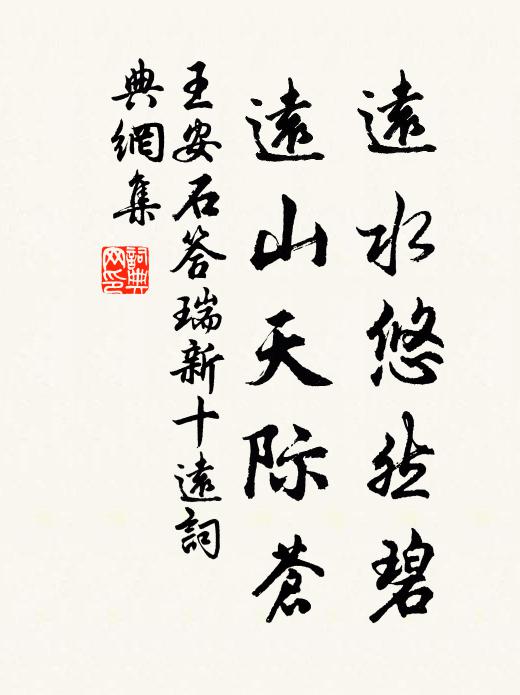 遠水悠然碧
遠山天际蒼
王安石答瑞新十遠詞
典網集
詞典
网印